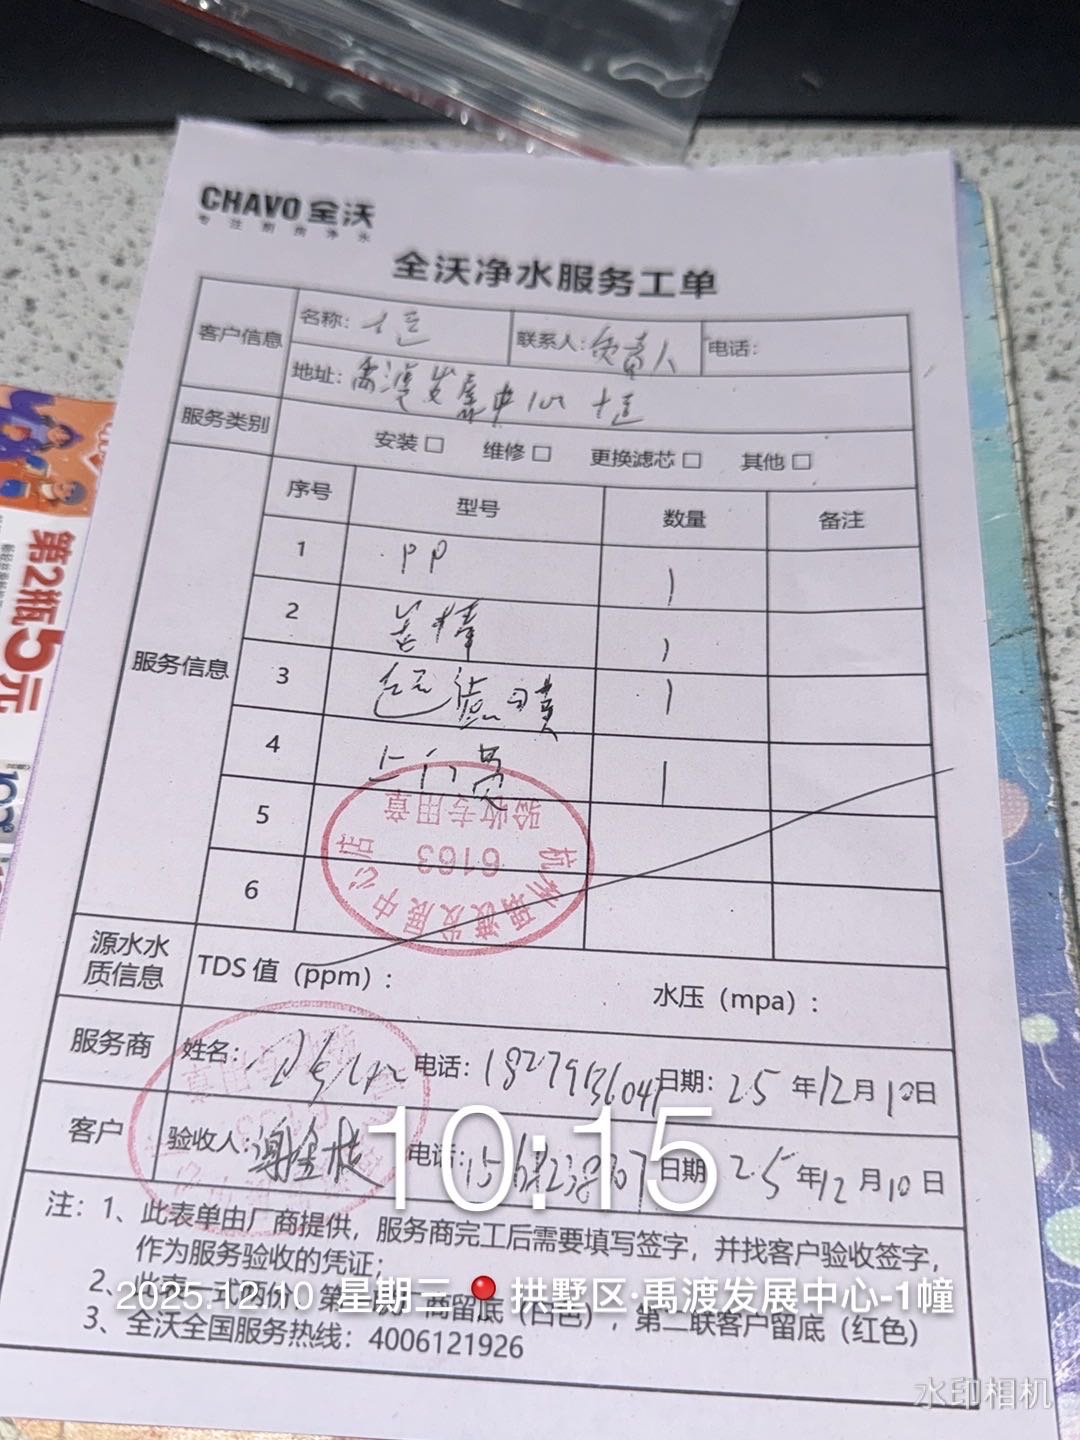 CHAVO 全沃
专注厨房净水
全沃净水服务工单
客户信息 名称： 联系人：负责人 电话：
地址：禹渡发展中心 1幢
服务类别 安装□ 维修□ 更换滤芯□ 其他□
服务信息 序号 型号 数量 备注
1 PP 1
2 1
3 1
4 上门费 1
5
6
杭州禹渡发展中心店
6163
验收专用章
源水水质信息 TDS 值（ppm）： 水压（mpa）：
服务商 姓名： 电话：18279136041 日期：25 年 12 月 10 日
客户 验收人：谢金枝 电话： 日期 25 年 12 月 10 日
10:15
注：1、此表单由厂商提供，服务商完工后需要填写签字，并找客户验收签字，
作为服务验收的凭证；
2、此表一式两份，第一联厂商留底（白色），第二联客户留底（红色）
2025.12.10 星期三 拱墅区·禹渡发展中心-1幢
3、全沃全国服务热线：4006121926
水印相机
第2瓶5元